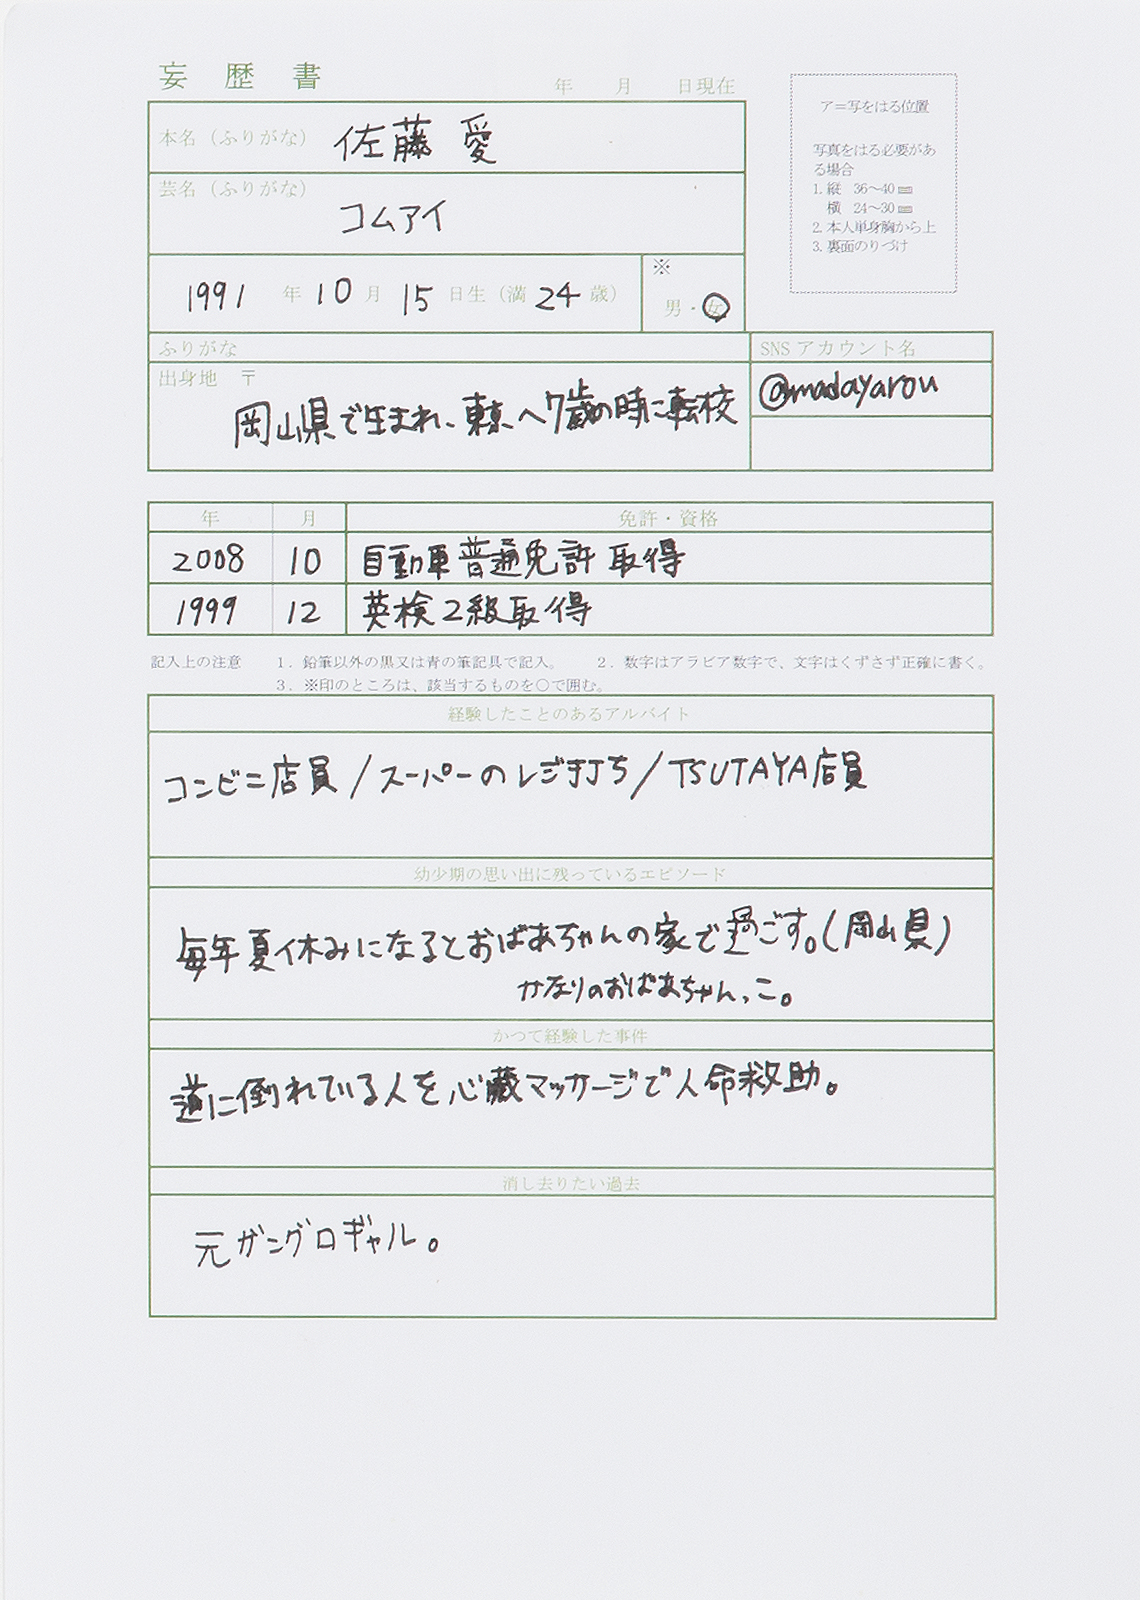 妄歴書
年 月 日現在
本名（ふりがな） 佐藤 愛
芸名（ふりがな）
コムアイ
1991 年 10 月 15 日生（満 24 歳）
※
男・女
ア＝写をはる位置
写真をはる必要があ
る場合
1. 縦 36～40 ㎜
横 24～30 ㎜
2. 本人単身胸から上
3. 裏面のりづけ
ふりがな
SNS アカウント名
出身地 〒
岡山県で生まれ、東京へ7歳の時に転校
@madayarou
年 月 免許・資格
2008 10 自動車普通免許 取得
1999 12 英検2級取得
記入上の注意 1．鉛筆以外の黒又は青の筆記具で記入。 2．数字はアラビア数字で、文字はくずさず正確に書く。
3．※印のところは、該当するものを○で囲む。
経験したことのあるアルバイト
コンビニ店員/スーパーのレジ打ち/TSUTAYA店員
幼少期の思い出に残っているエピソード
毎年夏休みになるとおばあちゃんの家で過ごす。(岡山県)
かなりのおばあちゃんっこ。
かつて経験した事件
道に倒れている人を心臓マッサージで人命救助。
消し去りたい過去
元ガングロギャル。